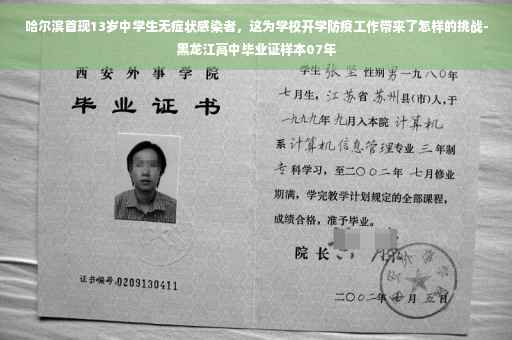 哈尔滨首现13岁中学生无症状感染者，这为学校开学防疫工作带来了怎样的挑战-
黑龙江高中毕业证样本07年
西安外事学院
毕业证书
证书编号:0209130411
学生张坚性别男一九八〇年
七月生，江苏省苏州县(市)人,于
一九九九年九月入本院计算机
系计算机信息管理专业三年制
专科学习，至二〇〇二年七月修业
期满，学完教学计划规定的全部课程，
成绩合格，准予毕业。
院长
二〇〇二年七月五日